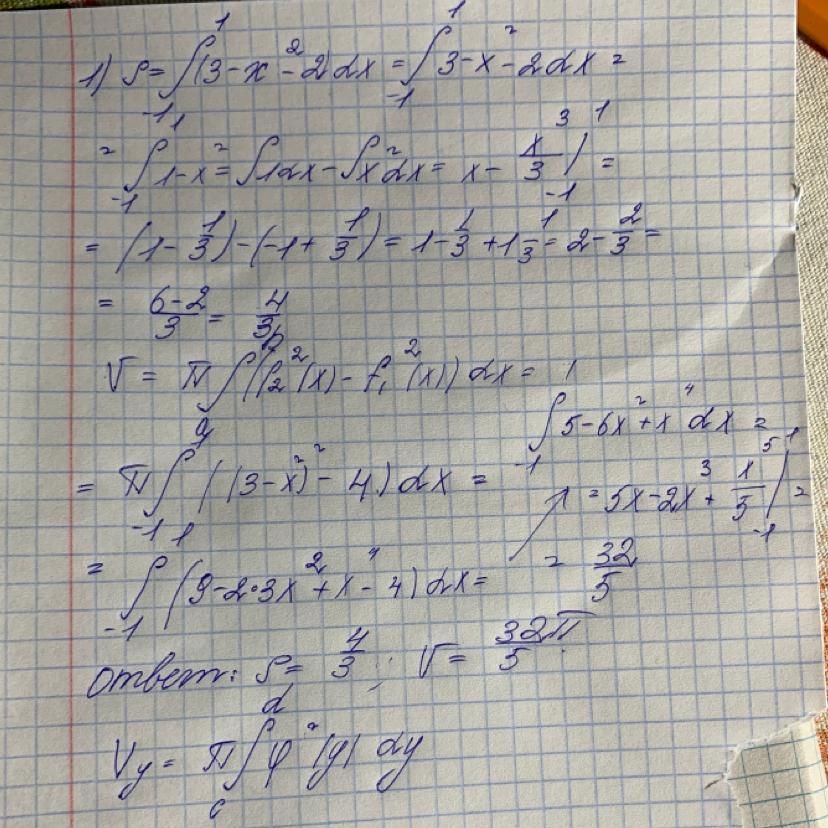 1) S = ∫₋₁¹ (3 - x² - 2) dx = ∫₋₁¹ 3 - x² - 2 dx =
= ∫₋₁¹ 1 - x² = ∫ 1 dx - ∫ x² dx = x - x³/3 |₋₁¹ =
= (1 - 1/3) - (-1 + 1/3) = 1 - 1/3 + 1 1/3 = 2 - 2/3 =
= (6-2)/3 = 4/3
V = π ∫ₐᵇ (f₂²(x) - f₁²(x)) dx =
= π ∫₋₁¹ ((3 - x²)² - 4) dx =
= ∫₋₁¹ (9 - 2·3x² + x⁴ - 4) dx =
∫₋₁¹ 5 - 6x² + x⁴ dx =
= 5x - 2x³ + x⁵/5 |₋₁¹ =
= 32/5
Ответ: S = 4/3; V = 32π/5.
Vy = π ∫_c^d φ²(y) dy